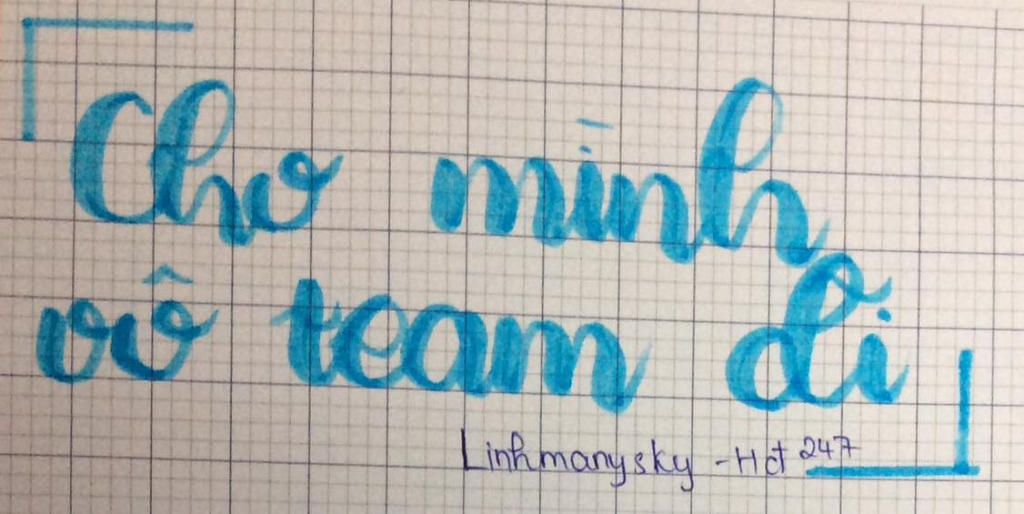 Cho mình
vô team đi
Linhmanysky - Hđ 247